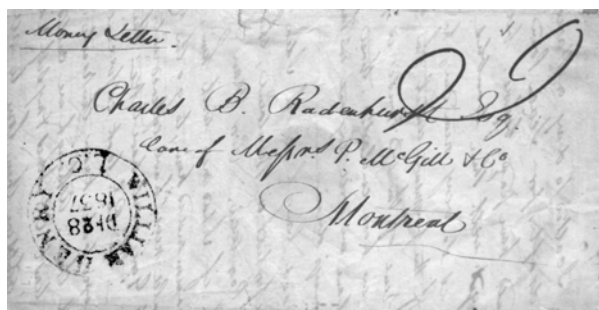 Money Letter.
Charles B. Radenhurst Esq.
Care of Messrs. P. McGill & Co
Montreal
WILLIAM HENRY L.C
DE 28
1837